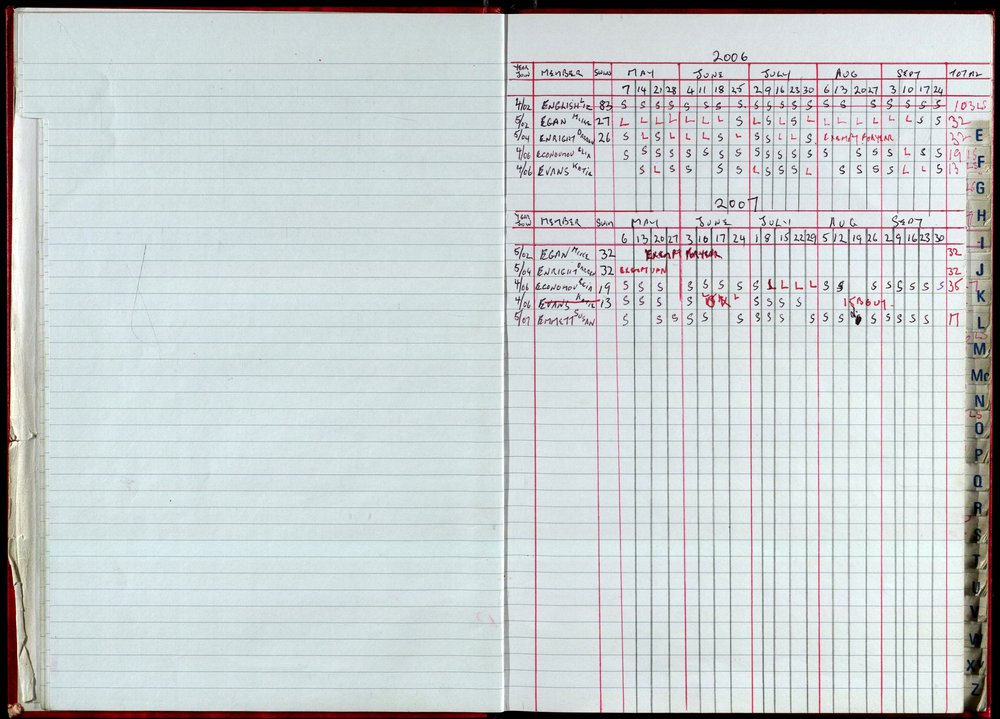 2006
YEAR JOIN MEMBER SWIM MAY JUNE JULY AUG SEPT TOTAL
7 14 21 28 4 11 18 25 2 9 16 23 30 6 13 20 27 3 10 17 24
4/02 ENGLISH LIZ 83 S S S S S S S S S S S S S S S S S S S S 103
5/02 EGAN MIKE 27 L L L L L L L S L S L S L L L L L L L S S 32
5/04 ENRIGHT 26 S L S L L L S L S S L L S EXEMPT FOR YEAR 32
4/06 ECONOMOU ELIA S S S S S S S S S S S S S S S S S S L S S 19
4/06 EVANS KATIE S L S S S S L S S S L S S S S L L S 13
2007
YEAR JOIN MEMBER SWIM MAY JUNE JULY AUG SEPT
6 13 20 27 3 10 17 24 1 8 15 22 29 5 12 19 26 2 9 16 23 30
5/02 EGAN MIKE 32 EXEMPT FOR YEAR 32
5/04 ENRIGHT 32 EXEMPT 32
4/06 ECONOMOU ELIA 19 S S S S S S S S L L L L S S S S S S S S 35
4/06 EVANS KATIE 13 S S S S L L S S S S
5/07 EMMETT SUSAN S S S S S S S S S S S S S S S S S 17
E
F
G
H
I
J
K
L
M
Mc
N
O
P
Q
R
S
T
U
V
W
X
Z